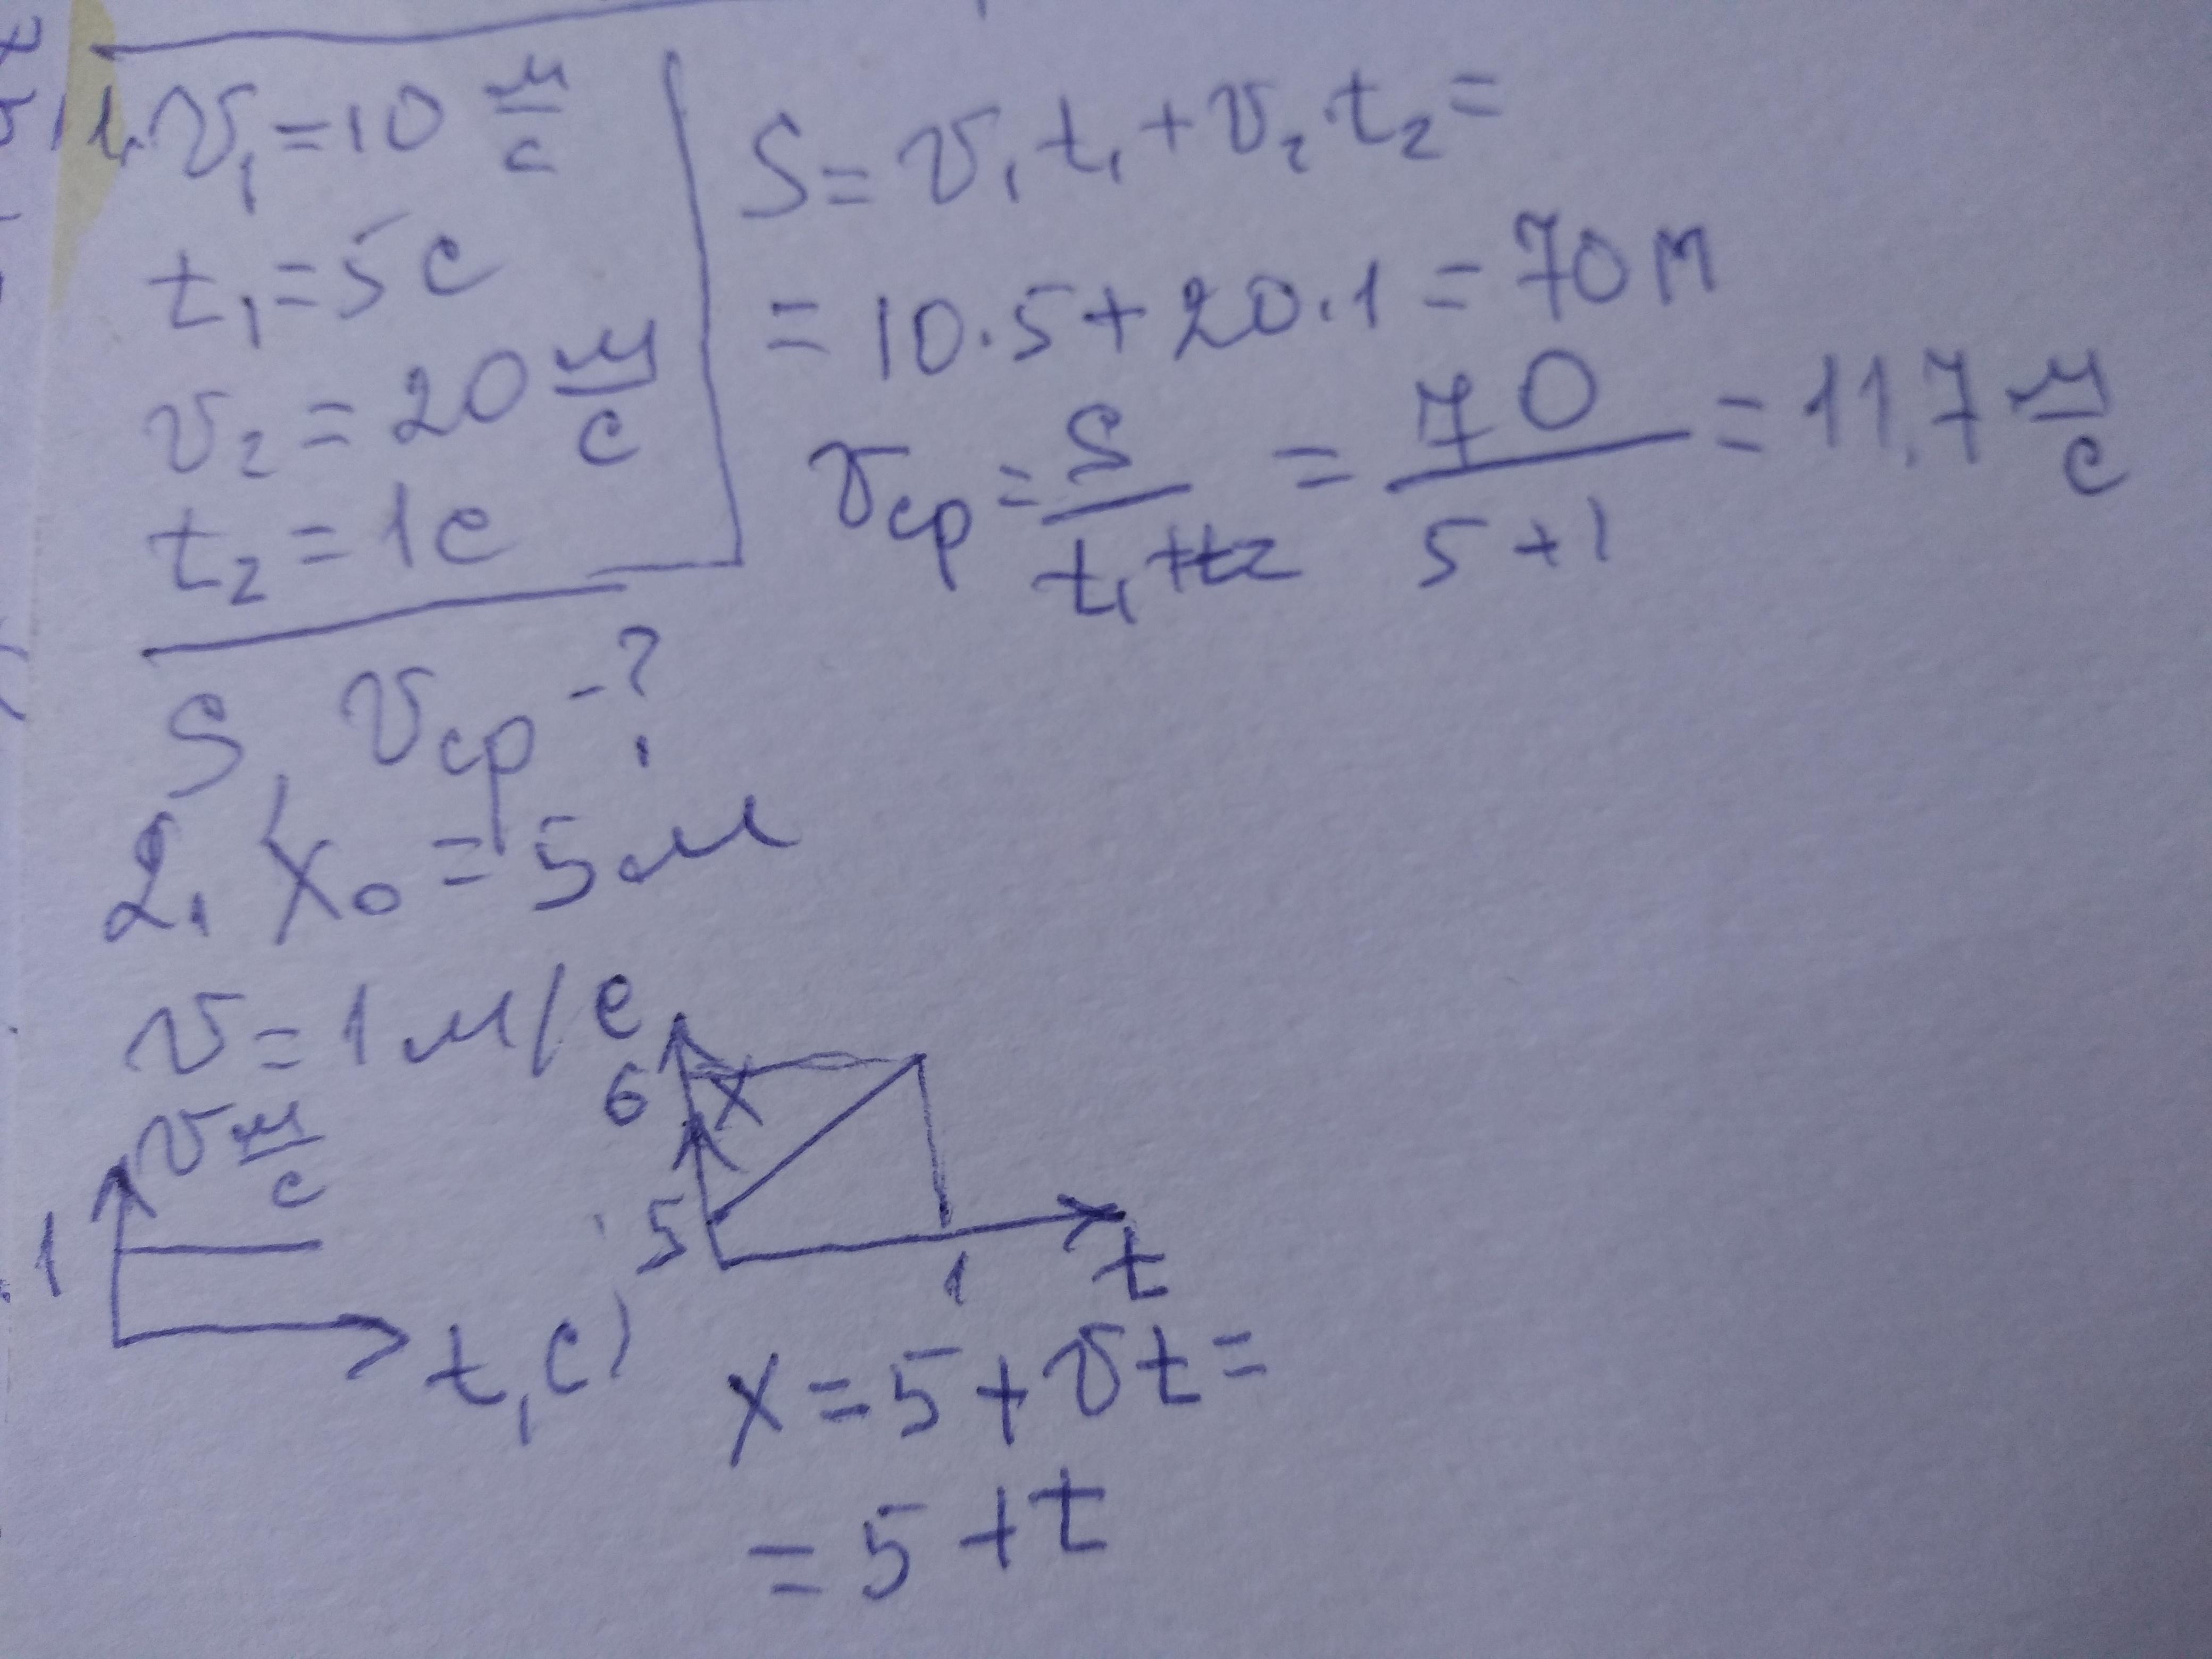 1. v₁ = 10 м/с
t₁ = 5 с
v₂ = 20 м/с
t₂ = 1 с
S, vср - ?
S = v₁t₁ + v₂·t₂ =
= 10·5 + 20·1 = 70 м
vср = S/(t₁+t₂) = 70/(5+1) = 11,7 м/с
2. x₀ = 5 м
v = 1 м/с
v м/с
1
t, с
6
x
5
1
t
x = 5 + vt =
= 5 + t